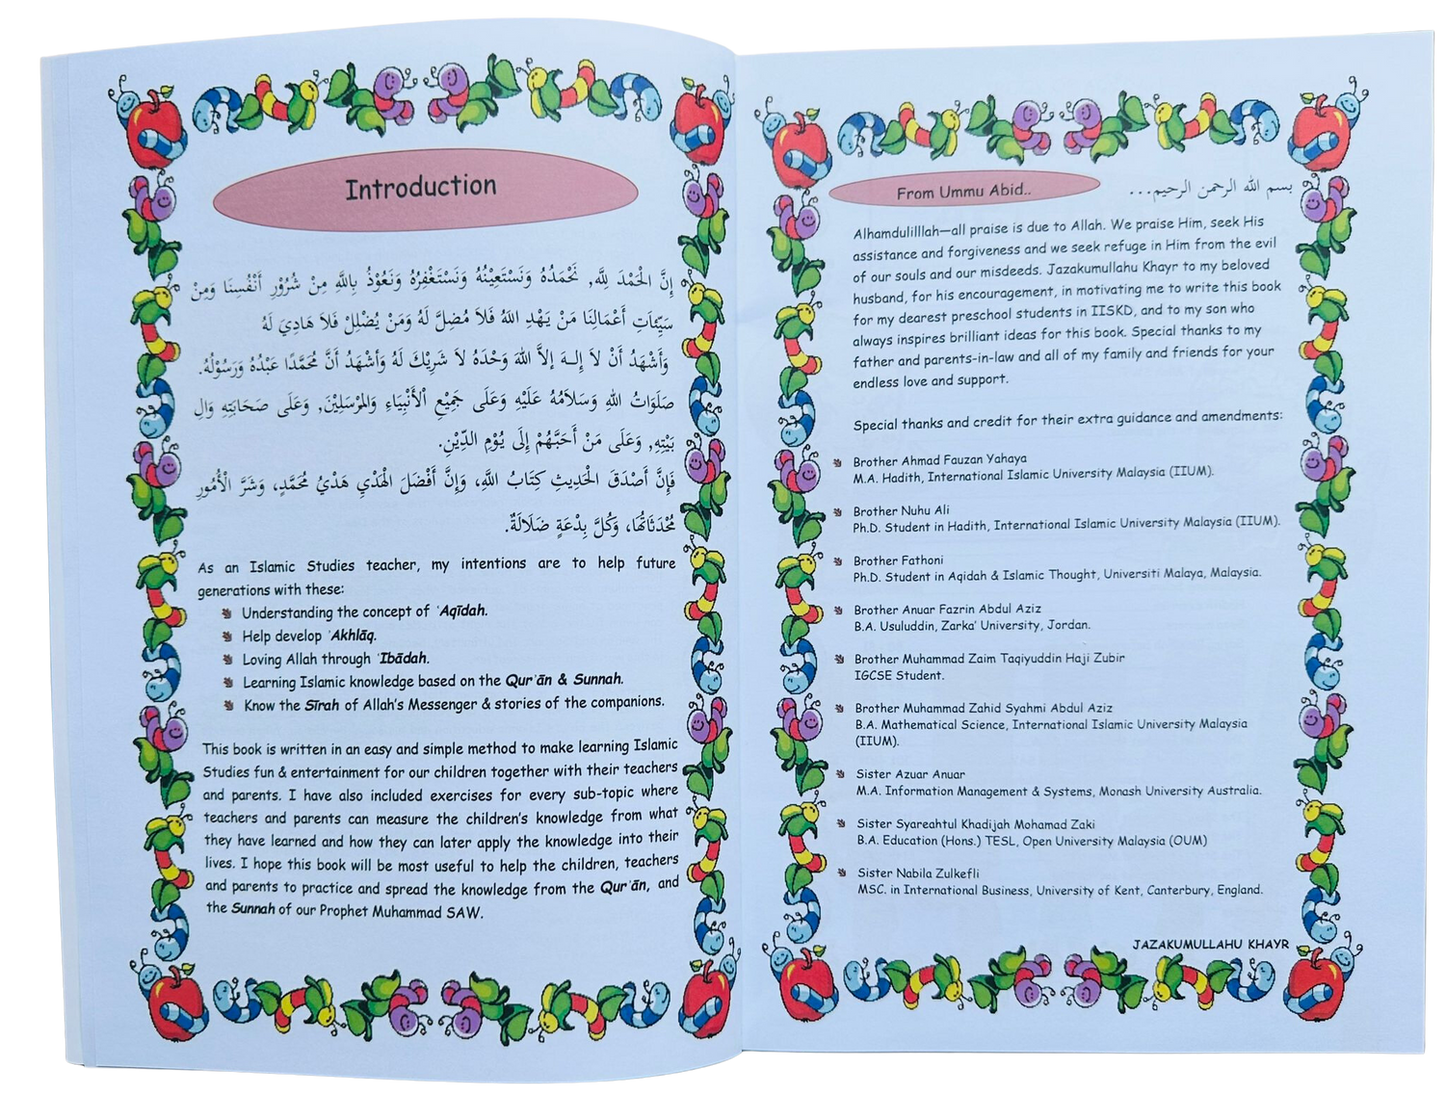 Introduction
إِنَّ الْحَمْدَ لِلَّه, نَحْمَدُهُ وَنَسْتَعِيْنُهُ وَنَسْتَغْفِرُهُ وَنَعُوْذُ بِاللَّهِ مِنْ شُرُوْرِ أَنْفُسِنَا وَمِنْ
سَيِّئَاتِ أَعْمَالِنَا مَنْ يَهْدِ اللهُ فَلاَ مُضِلَّ لَهُ وَمَنْ يُضْلِلْ فَلاَ هَادِيَ لَهُ
وَأَشْهَدُ أَنْ لاَ إِلــهَ إلاَّ اللهَ وَحْدَهُ لاَ شَرِيْكَ لَهُ وَأشْهَدُ أَنَّ مُحَمَّدًا عَبْدُهُ وَرَسُوْلُهُ.
صَلَوَاتُ اللهِ وَسَلاَمُهُ عَلَيْهِ وَعَلَى جَمِيْعِ الْأَنْبِيَاءِ وَالمُرْسَلِيْنَ, وَعَلَى صَحَابَتِهِ وَالِ
بَيْتِهِ, وَعَلَى مَنْ أَحَبَّهُمْ إِلَى يُوْمِ الدِّيْنِ.
فَإِنَّ أَصْدَقَ الْحَدِيثِ كِتَابُ اللَّهِ، وَإِنَّ أَفْضَلَ الْهَدْيِ هَدْيُ مُحَمَّدٍ، وَشَرَّ الْأُمُورِ
مُحْدَثَاتُهَا، وَكُلَّ بِدْعَةٍ ضَلَالَةٌ.
As an Islamic Studies teacher, my intentions are to help future
generations with these:
Understanding the concept of ʿAqīdah.
Help develop ʿAkhlāq.
Loving Allah through ʿIbādah.
Learning Islamic knowledge based on the Qurʾān & Sunnah.
Know the Sīrah of Allah's Messenger & stories of the companions.
This book is written in an easy and simple method to make learning Islamic
Studies fun & entertainment for our children together with their teachers
and parents. I have also included exercises for every sub-topic where
teachers and parents can measure the children's knowledge from what
they have learned and how they can later apply the knowledge into their
lives. I hope this book will be most useful to help the children, teachers
and parents to practice and spread the knowledge from the Qurʾān, and
the Sunnah of our Prophet Muhammad SAW.
From Ummu Abid..
بسم الله الرحمن الرحيم...
Alhamdulilllah—all praise is due to Allah. We praise Him, seek His
assistance and forgiveness and we seek refuge in Him from the evil
of our souls and our misdeeds. Jazakumullahu Khayr to my beloved
husband, for his encouragement, in motivating me to write this book
for my dearest preschool students in IISKD, and to my son who
always inspires brilliant ideas for this book. Special thanks to my
father and parents-in-law and all of my family and friends for your
endless love and support.
Special thanks and credit for their extra guidance and amendments:
Brother Ahmad Fauzan Yahaya
M.A. Hadith, International Islamic University Malaysia (IIUM).
Brother Nuhu Ali
Ph.D. Student in Hadith, International Islamic University Malaysia (IIUM).
Brother Fathoni
Ph.D. Student in Aqidah & Islamic Thought, Universiti Malaya, Malaysia.
Brother Anuar Fazrin Abdul Aziz
B.A. Usuluddin, Zarka' University, Jordan.
Brother Muhammad Zaim Taqiyuddin Haji Zubir
IGCSE Student.
Brother Muhammad Zahid Syahmi Abdul Aziz
B.A. Mathematical Science, International Islamic University Malaysia
(IIUM).
Sister Azuar Anuar
M.A. Information Management & Systems, Monash University Australia.
Sister Syareahtul Khadijah Mohamad Zaki
B.A. Education (Hons.) TESL, Open University Malaysia (OUM)
Sister Nabila Zulkefli
MSC. in International Business, University of Kent, Canterbury, England.
JAZAKUMULLAHU KHAYR